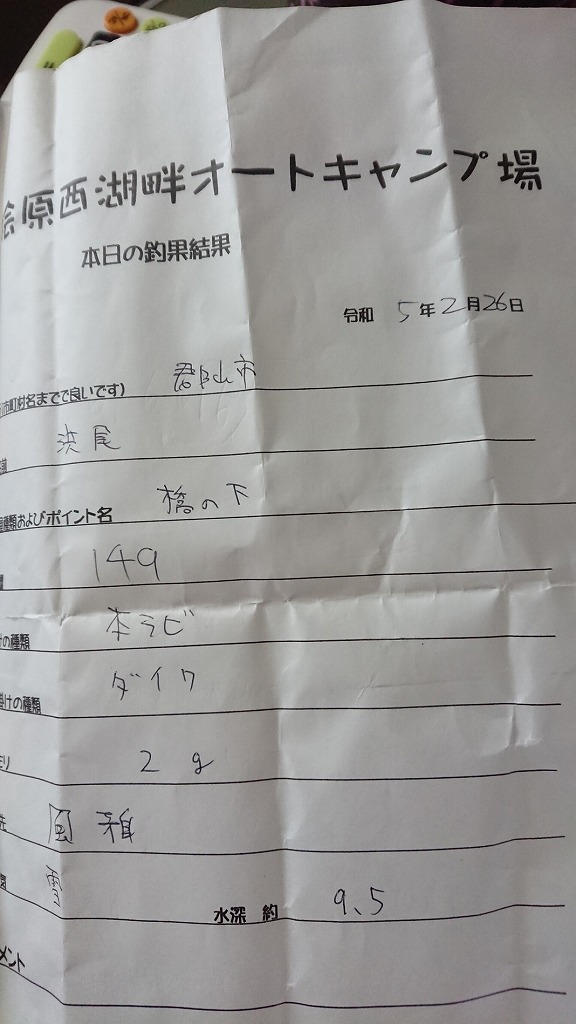 桧原西湖畔オートキャンプ場
本日の釣果結果
令和 5年2月26日
市町村名までで良いです) 郡山市
浜尾
種類およびポイント名 橋の下
149
けの種類 本ラビ
掛けの種類 ダイワ
2g
風雅
雪 水深 約 9.5
メント